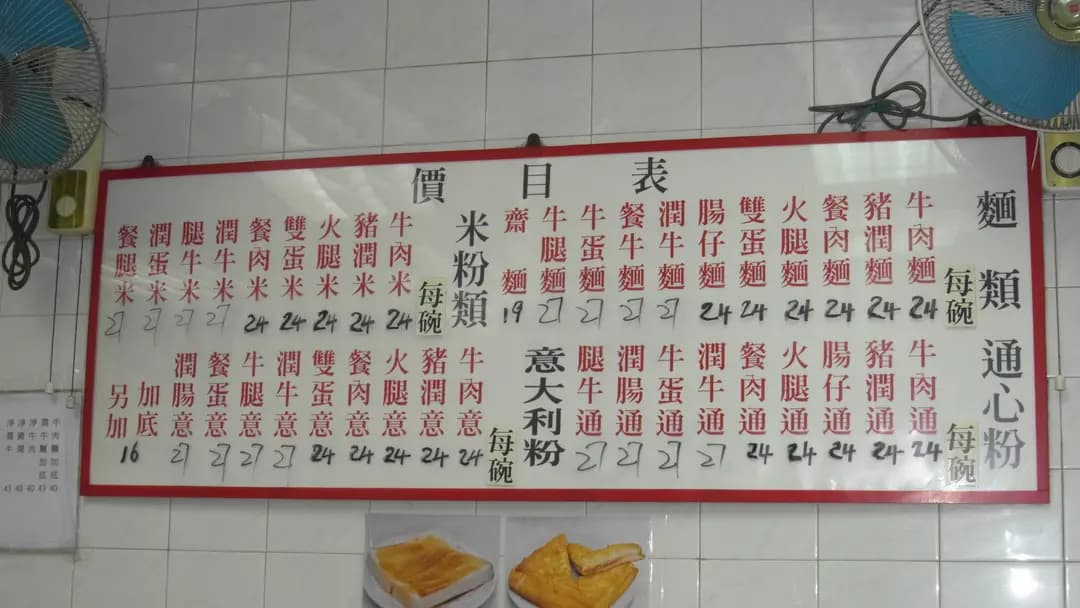 價目表
麵類
每碗
牛肉麵 24
豬潤麵 24
餐肉麵 24
火腿麵 24
雙蛋麵 24
腸仔麵 24
潤牛麵 27
餐牛麵 27
牛蛋麵 27
牛腿麵 27
齋麵 19
米粉類
每碗
牛肉米 24
豬潤米 24
火腿米 24
雙蛋米 24
餐肉米 24
潤牛米 27
腿牛米 27
潤蛋米 27
餐腿米 27
通心粉
每碗
牛肉通 24
豬潤通 24
腸仔通 24
火腿通 24
餐肉通 24
潤牛通 27
牛蛋通 27
潤腸通 27
腿牛通 27
意大利粉
每碗
牛肉意 24
豬潤意 24
火腿意 24
餐肉意 24
雙蛋意 24
潤牛意 27
牛腿意 27
餐蛋意 27
潤腸意 27
加底
另加 16